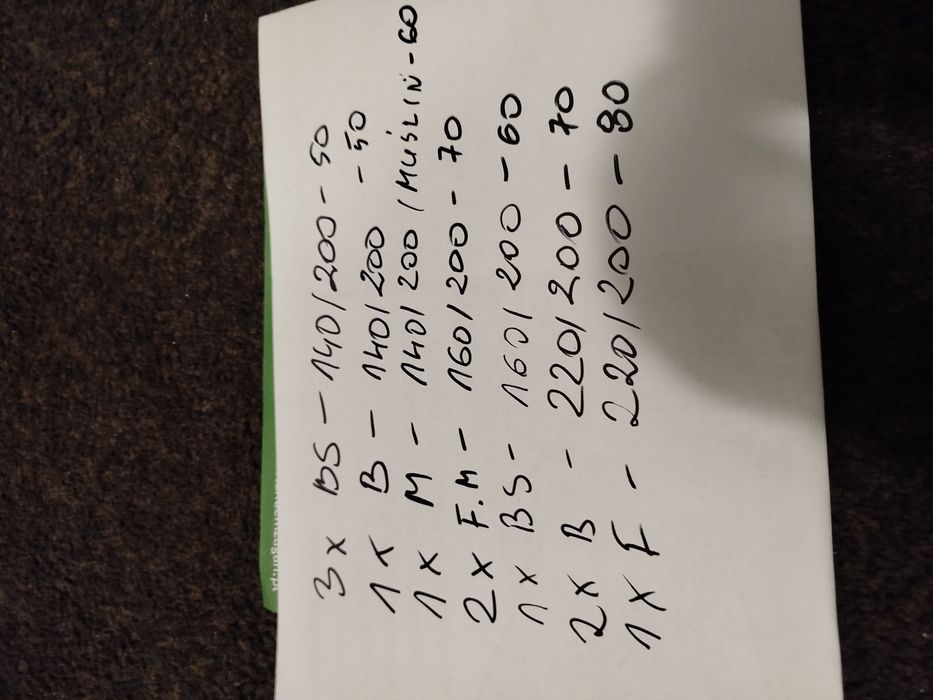 3x BS - 140/200 - 50
1x B - 140/200 - 50
1x M - 140/200 /MUŚLIN - 60
2x F.M - 160/200 - 70
1x BS - 160/200 - 60
2x B - 220/200 - 70
1x F - 220/200 - 80